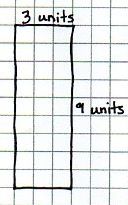 3 units
9 units